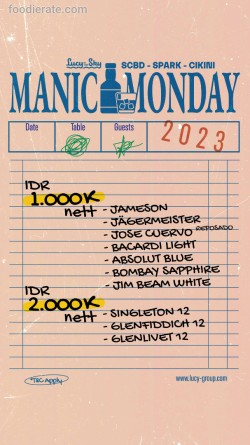 foodierate.com
Lucy in the Sky
SCBD - SPARK - CIKINI
MANIC MONDAY
Date
Table
Guests
2023
IDR
1.000K
nett
- JAMESON
- JÄGERMEISTER
- JOSE CUERVO REPOSADO
- BACARDI LIGHT
- ABSOLUT BLUE
- BOMBAY SAPPHIRE
- JIM BEAM WHITE
IDR
2.000K
nett
- SINGLETON 12
- GLENFIDDICH 12
- GLENLIVET 12
*T&C Apply
www.lucy-group.com